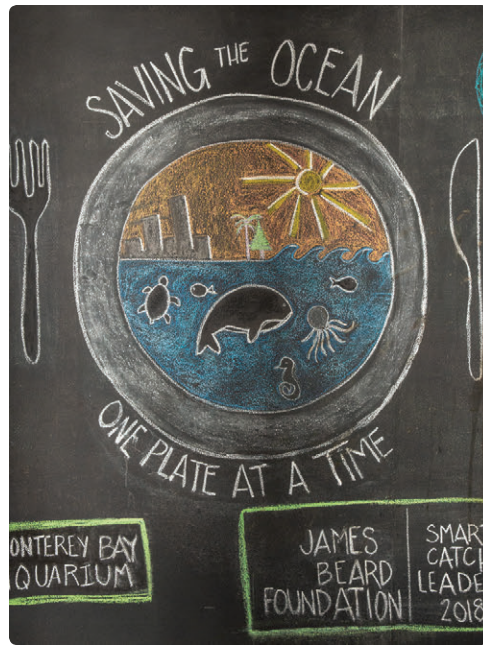 SAVING THE OCEAN
ONE PLATE AT A TIME
ONTEREY BAY
QUARIUM
JAMES
BEARD
FOUNDATION
SMART
CATCH
LEADE
2018